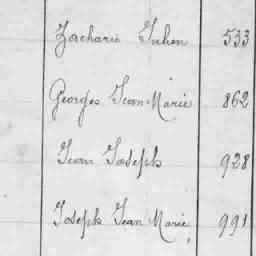 Zacharie Julien 533
Georges Jean Marie 862
Jean Joseph 928
Joseph Jean Marie, 991